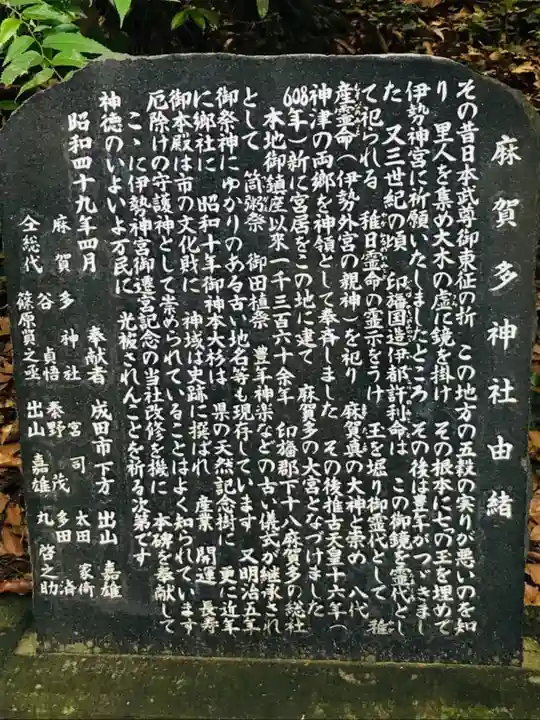 麻賀多神社由緒
その昔日本武尊御東征の折 この地方の五穀の実りが悪いのを知
り 里人を集め大木の虚に鏡を掛け その根本に七の玉を埋めて
伊勢神宮に祈願いたしましたところ その後は豊年がつゞきまし
た 又三世紀の頃 印旛国造伊都許利命は この御鏡を霊代とし
て祀られる 稚日霊命の霊示をうけ 玉を堀り御霊代として 稚
産霊命(伊勢外宮の親神)を祀り 麻賀真の大神と崇め 八代
神津の両郷を神領として奉斉しました その後推古天皇十六年(
608年)新に宮居をこの地に建て 麻賀多の大宮となづけました
本地御鎮座以來一千三百六十余年 印旛郡下十八麻賀多の総社
として 筒粥祭 御田植祭 豊年神楽などの古い儀式が継承され
御祭神にゆかりのある古い地名等も現存しています 又明治五年
に郷社に 昭和十年御神本大杉は 県の天然記念樹に 更に近年
御本殿は市の文化財に 神域は史跡に撰ばれ 産業 開運 長寿
厄除けの守護神として崇められていることはよく知られています
こゝに伊勢神宮御遷宮記念の当社改修を機に 本碑を奉献して
神徳のいよいよ万民に 光被されんことを祈る次第です
昭和四十九年四月 奉献者 成田市下方 出山 嘉雄
麻賀多神社 宮司 太田 家衛
谷 貞悟 秦野 茂 多田 治
全総代 篠原貫之丞 出山 嘉雄 丸 啓之助